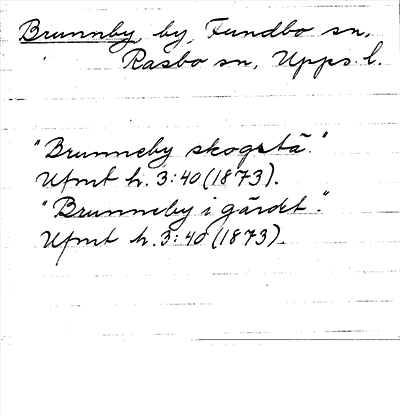 Brunnby, by, Fundbo sn,
Rasbo sn, Upps. l.
"Brunneby skogstä."
Ufmt h. 3:40 (1873).
"Brunneby i gärdet."
Ufmt h. 3:40 (1873).